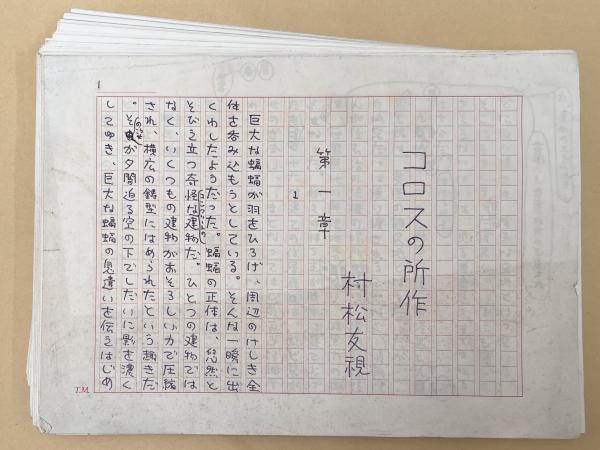 コロスの所作
村松友視
第一章
1
巨大な蝙蝠が羽をひろげ、周辺のけしき全
体を呑み込もうとしている。そんな一瞬に出
くわしたようだった。蝙蝠の正体は、悠然と
そびえ立つ奇怪な建物だ。ひとつの建物では
なく、いくつもの建物がおそろしい力で圧縮
され、横広の鋳型にはめられたという趣きだ
。それが夕闇迫る空の下でしだいに影を濃く
してゆき、巨大な蝙蝠の見違いを伝えはじめ
1
T.M.